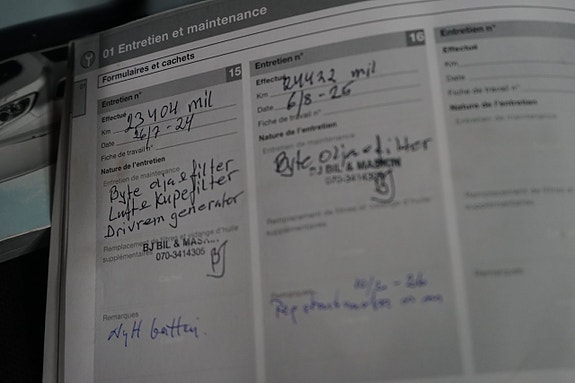 01 Entretien et maintenance
Formulaires et cachets
15
Entretien n°
Effectué
Km 23404 mil
Date 26/7-24
Fiche de travail n°
Nature de l'entretien
Entretien de maintenance
Byte olja & filter
Lufte Kupefilter
Drivrem generator
Remplacement de filtres et vidange d'huile
supplémentaires
BJ BIL & MASKIN
070-3414305
BJ
Remarques
Nytt batteri.
16
Entretien n°
Effectué
Km 24432 mil
Date 6/8-26
Fiche de travail n°
Nature de l'entretien
Entretien de maintenance
Byte olja & filter
BJ BIL & MASKIN
070-3414305
BJ
Remplacement de filtres et vidange d'huile
supplémentaires
Remarques
Entretien n°
Effectué
Km
Date
Fiche de travail n°
Nature de l'entretien
Entretien de maintenance
Remplacement de filtres et
supplémentaires
Remarques